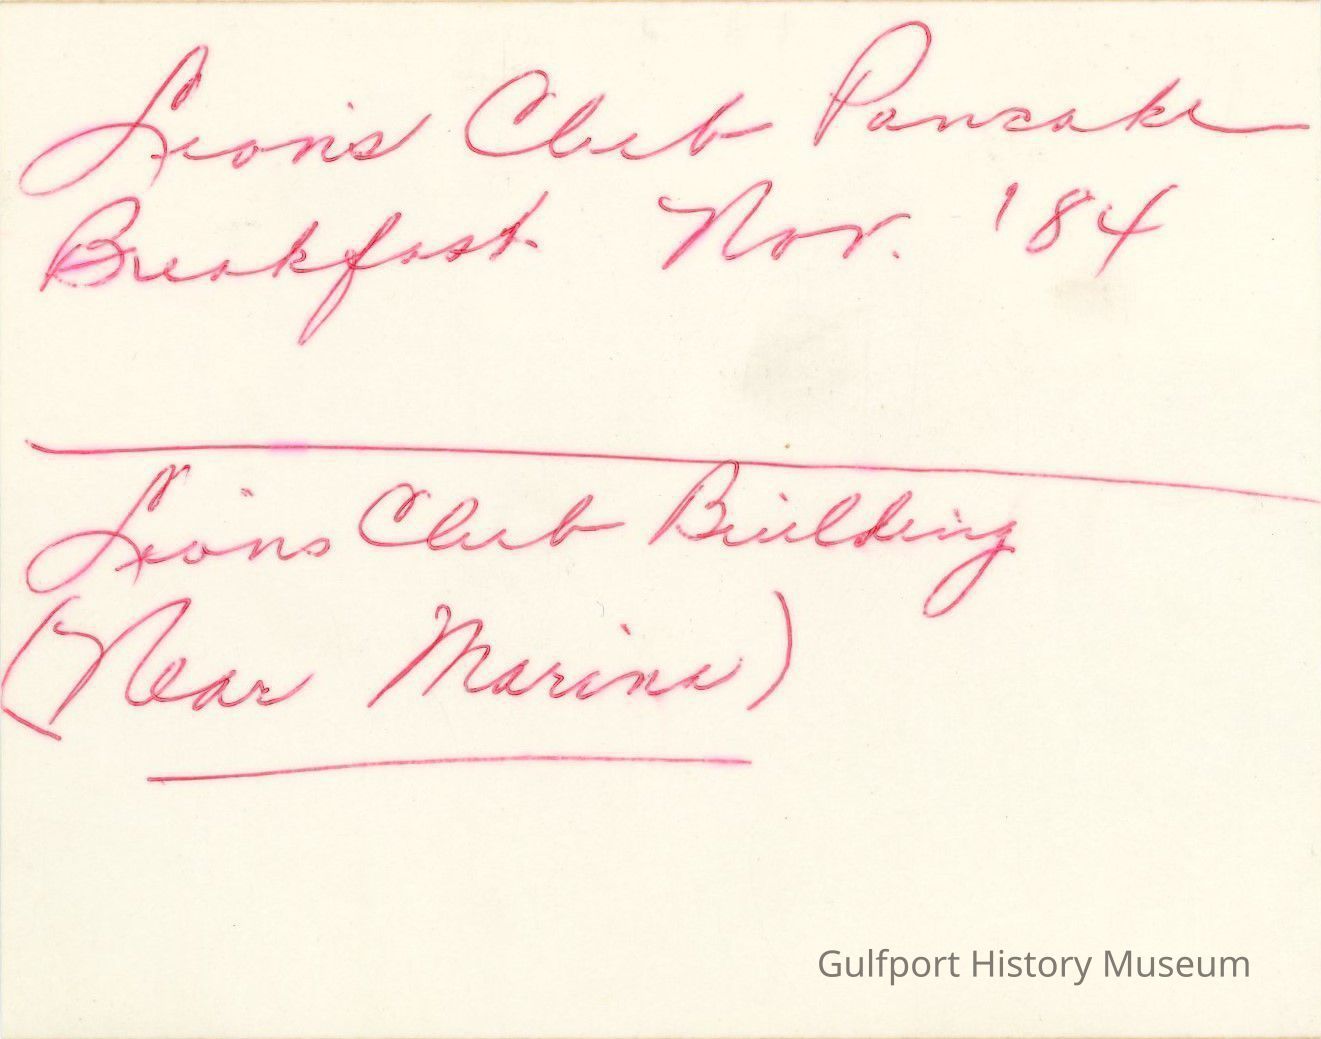 Lions Club Pancake
Breakfast Nov. '84
Lions Club Building
(Near Marina)
Gulfport History Museum